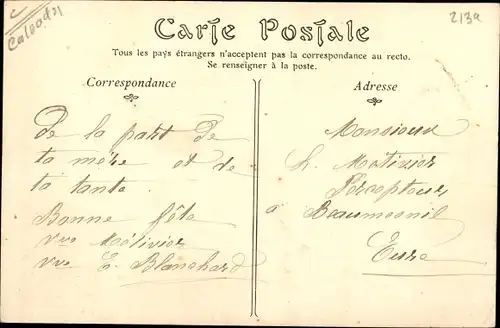 Calvados
213a
Carte Postale
Tous les pays étrangers n'acceptent pas la correspondance au recto.
Se renseigner à la poste.
Correspondance
De la part de
ta mère et de
ta tante
Bonne fête
Vve Métivier
Vve E. Blanchard
Adresse
Monsieur
h. Métivier
Percepteur
à Beaumesnil
Eure